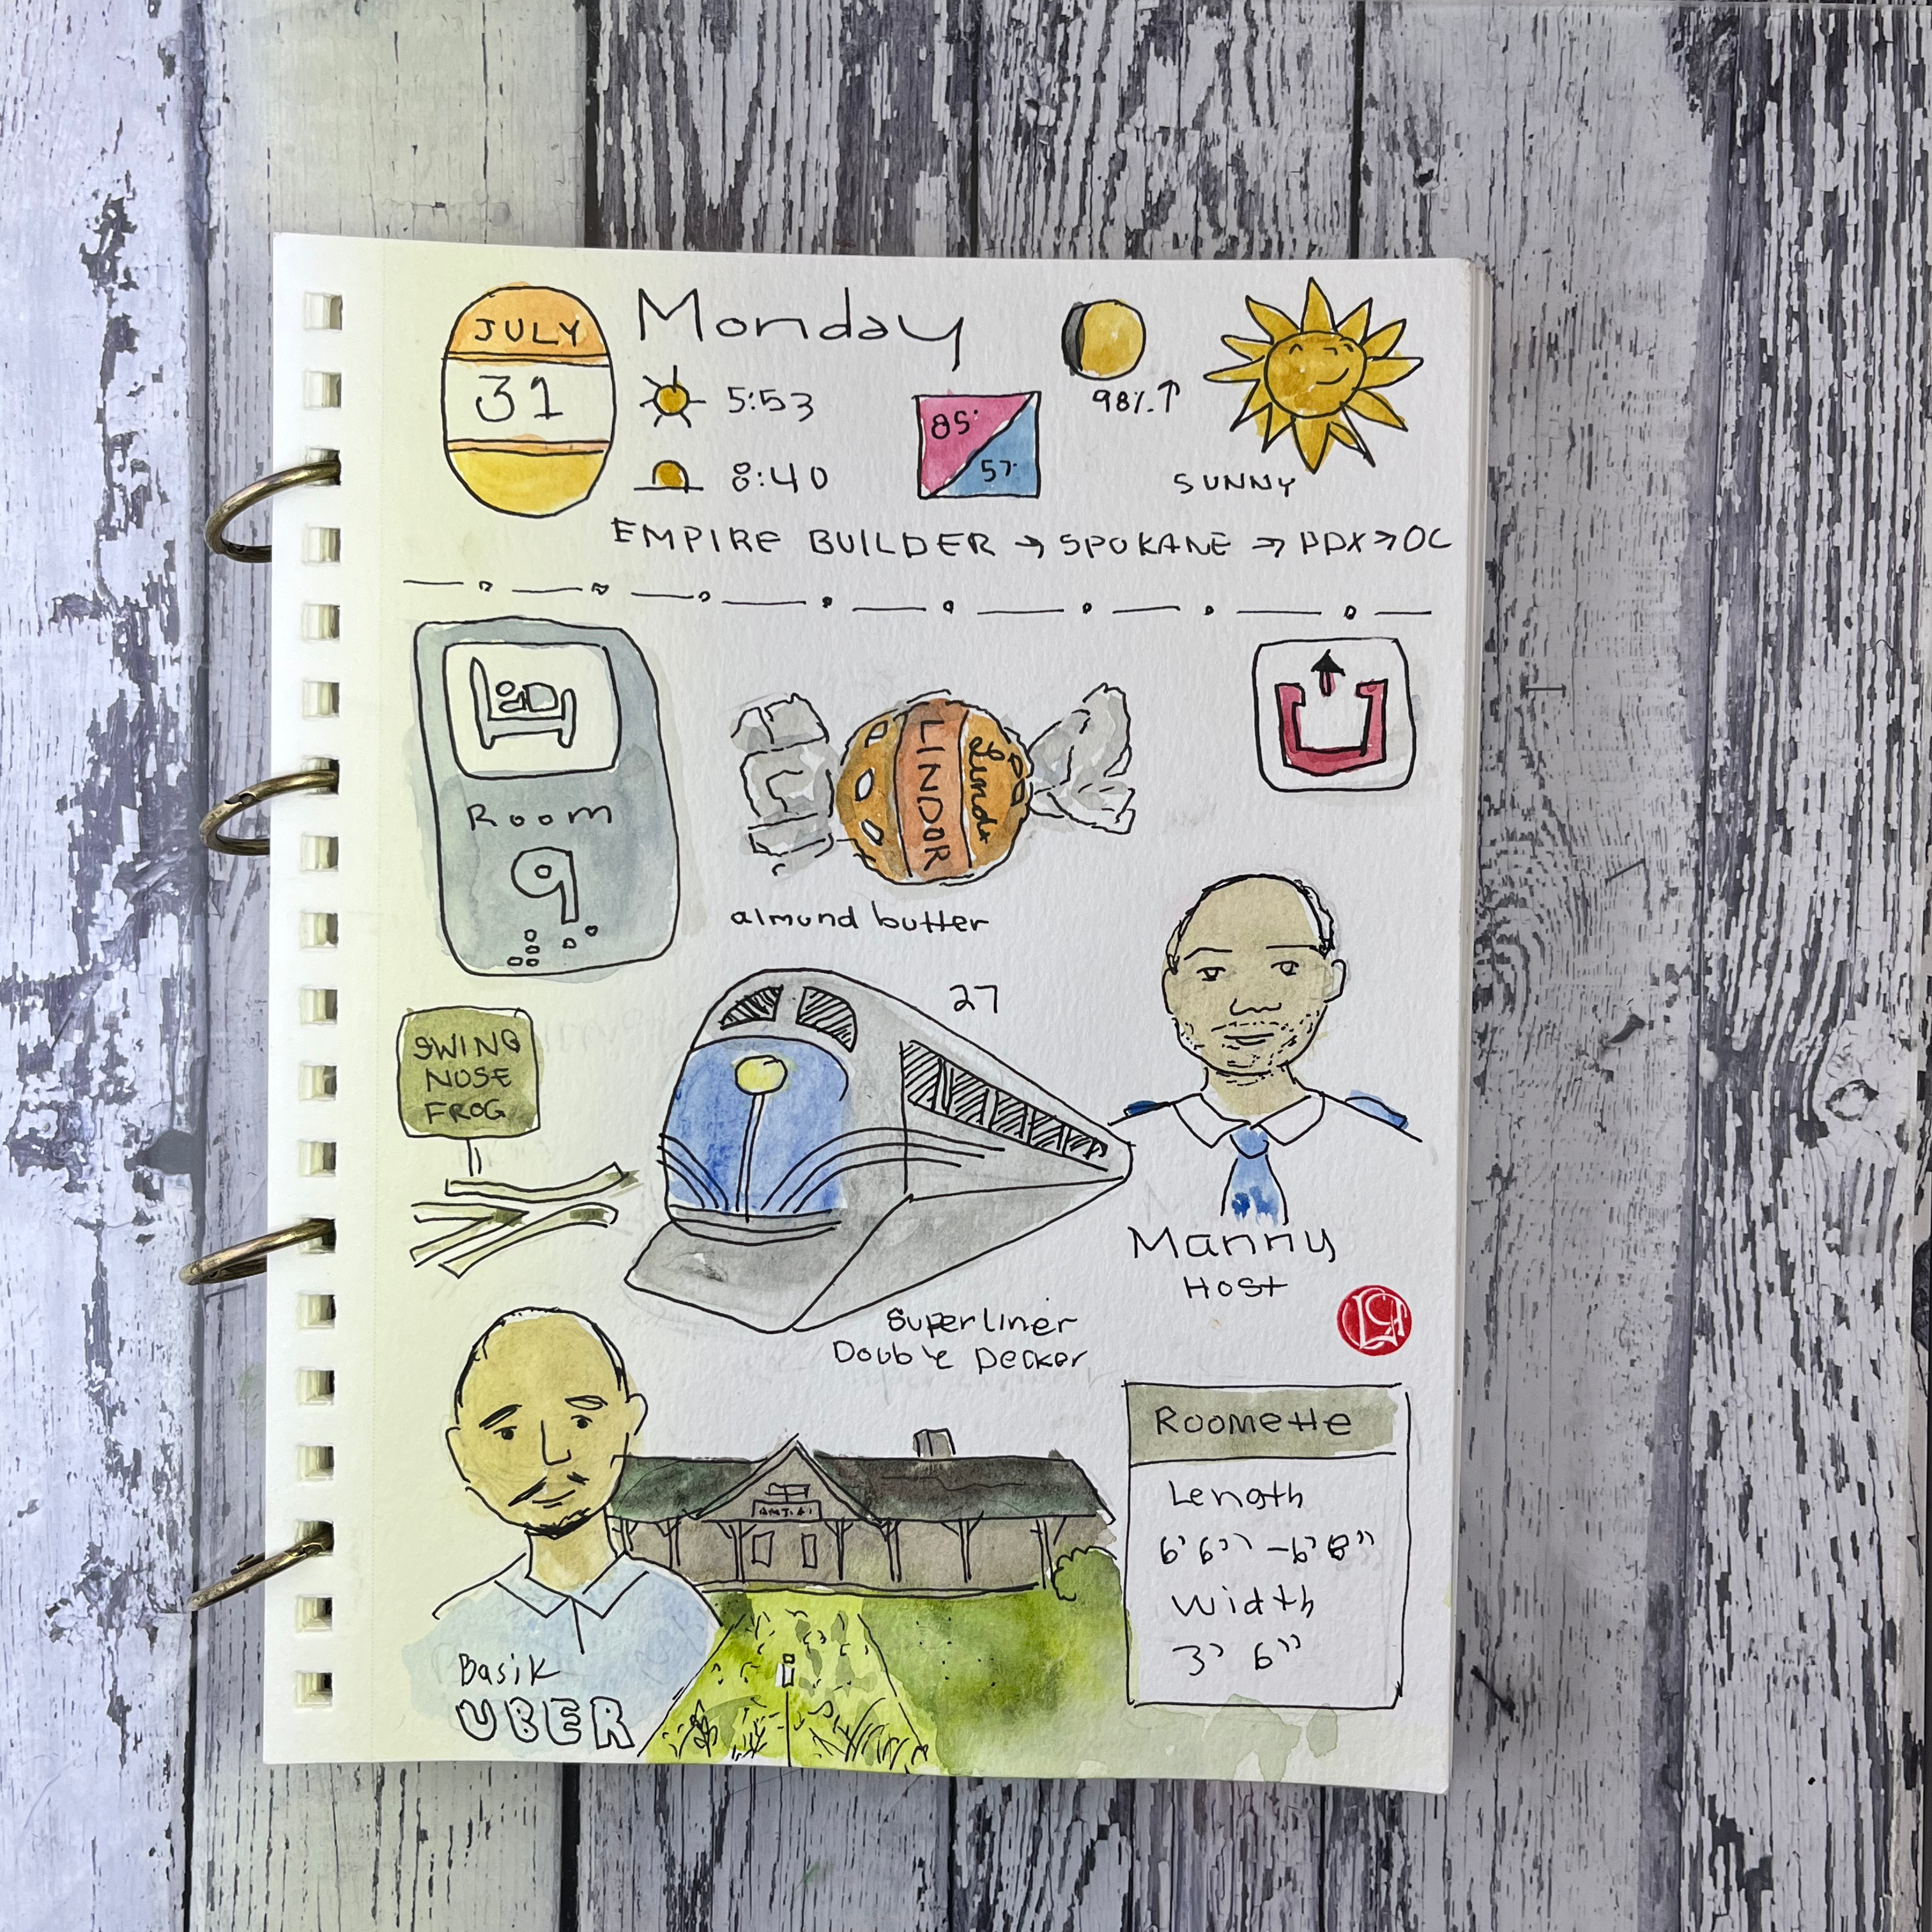 JULY
31
Monday
5:53
8:40
85°
57°
98%↑
SUNNY
EMPIRE BUILDER → SPOKANE → PDX → OC
Room
9
LINDOR
Lindt
almond butter
27
SWING
NOSE
FROG
Manny
Host
Superliner
Double Decker
Basik
UBER
Roomette
Length
6' 6" - 6' 8"
Width
3' 6"